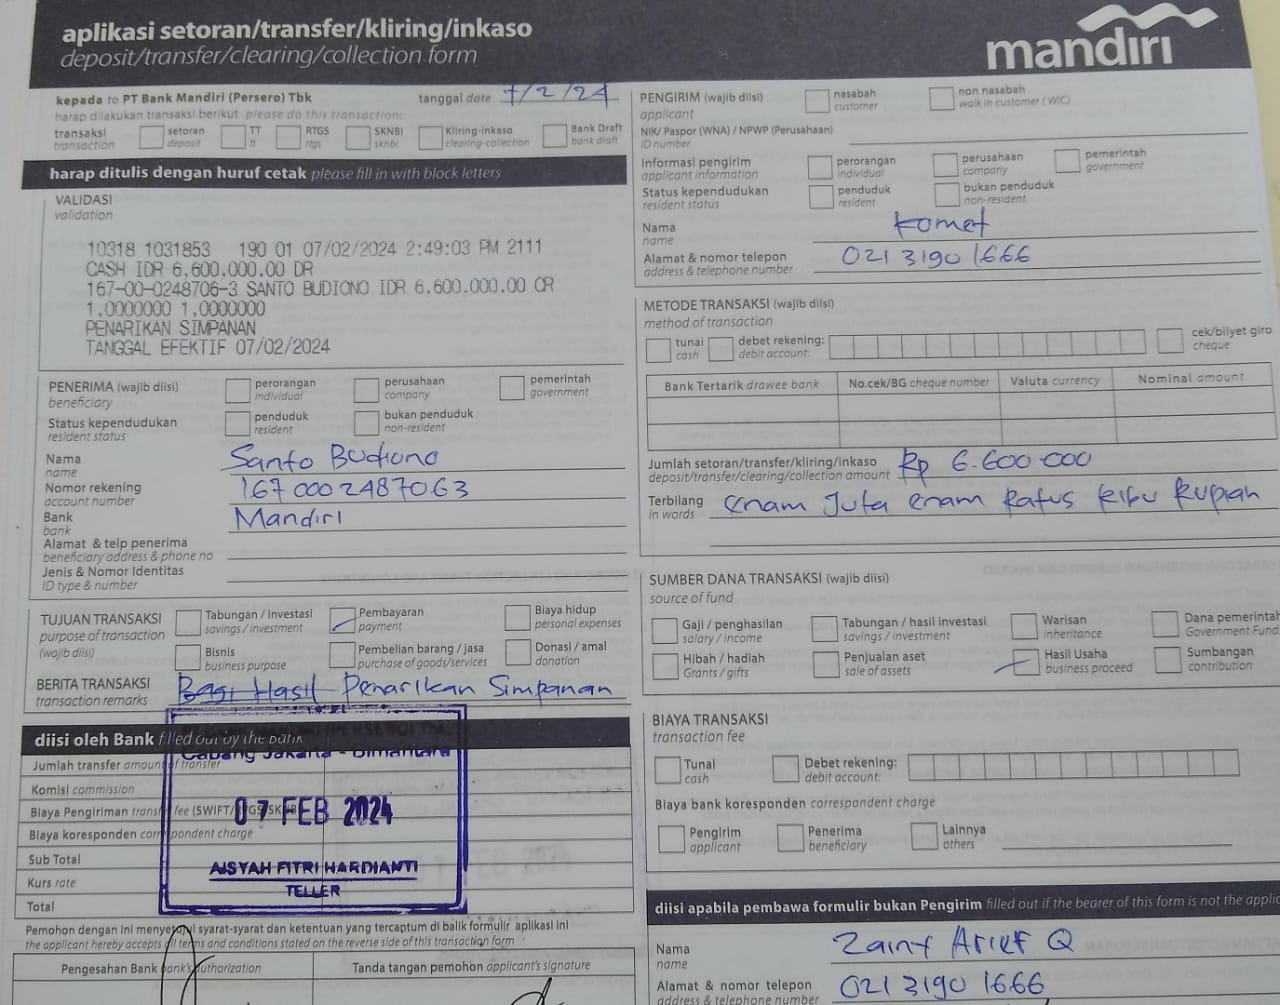 aplikasi setoran/transfer/kliring/inkaso
deposit/transfer/clearing/collection form
mandiri
kepada to PT Bank Mandiri (Persero) Tbk
tanggal date 7/2/24
harap dilakukan transaksi berikut please do this transaction:
transaksi transaction
setoran deposit
TT tt
RTGS rtgs
SKNBI sknbi
Kliring-inkaso clearing-collection
Bank Draft bank draft
harap ditulis dengan huruf cetak please fill in with block letters
VALIDASI
validation
10318 1031853 190 01 07/02/2024 2:49:03 PM 2111
CASH IDR 6,600,000.00 DR
167-00-0248706-3 SANTO BUDIONO IDR 6.600.000.00 CR
1.0000000 1.0000000
PENARIKAN SIMPANAN
TANGGAL EFEKTIF 07/02/2024
PENERIMA (wajib diisi)
beneficiary
perorangan individual
perusahaan company
pemerintah government
Status kependudukan
resident status
penduduk resident
bukan penduduk non-resident
Nama name Santo Budiono
Nomor rekening account number 1670002487063
Bank bank Mandiri
Alamat & telp penerima
beneficiary address & phone no
Jenis & Nomor Identitas
ID type & number
TUJUAN TRANSAKSI
purpose of transaction
(wajib diisi)
Tabungan / investasi savings / investment
Pembayaran payment
Biaya hidup personal expenses
Bisnis business purpose
Pembelian barang / jasa purchase of goods/services
Donasi / amal donation
BERITA TRANSAKSI
transaction remarks
Bagi Hasil Penarikan Simpanan
diisi oleh Bank filled out by the bank
Cabang Jakarta - Bimantara
07 FEB 2024
AISYAH FITRI HARDIANTI
TELLER
Jumlah transfer amount of transfer
Komisi commission
Biaya Pengiriman transfer fee (SWIFT/RTGS/SKNBI)
Biaya koresponden correspondent charge
Sub Total
Kurs rate
Total
Pemohon dengan ini menyetujui syarat-syarat dan ketentuan yang tercantum di balik formulir aplikasi ini
the applicant hereby accepts all terms and conditions stated on the reverse side of this transaction form
Pengesahan Bank bank's authorization
Tanda tangan pemohon applicant's signature
PENGIRIM (wajib diisi)
applicant
nasabah customer
non nasabah walk in customer (WIC)
NIK/ Paspor (WNA) / NPWP (Perusahaan)
ID number
Informasi pengirim
applicant information
perorangan individual
perusahaan company
pemerintah government
Status kependudukan
resident status
penduduk resident
bukan penduduk non-resident
Nama name Komet
Alamat & nomor telepon
address & telephone number
021 3190 1666
METODE TRANSAKSI (wajib diisi)
method of transaction
tunai cash
debet rekening: debit account:
cek/bilyet giro cheque
Bank Tertarik drawee bank
No.cek/BG cheque number
Valuta currency
Nominal amount
Jumlah setoran/transfer/kliring/inkaso
deposit/transfer/clearing/collection amount
Rp 6.600.000
Terbilang in words
enam Juta enam Ratus Ribu Rupiah
SUMBER DANA TRANSAKSI (wajib diisi)
source of fund
Gaji / penghasilan salary / income
Tabungan / hasil investasi savings / investment
Warisan inheritance
Dana pemerintah Government Fund
Hibah / hadiah Grants / gifts
Penjualan aset sale of assets
Hasil Usaha business proceed
Sumbangan contribution
BIAYA TRANSAKSI
transaction fee
Tunai cash
Debet rekening: debit account:
Biaya bank koresponden correspondent charge
Pengirim applicant
Penerima beneficiary
Lainnya others
diisi apabila pembawa formulir bukan Pengirim filled out if the bearer of this form is not the applic
Nama name Zainy Arief Q
Alamat & nomor telepon
address & telephone number
021 3190 1666